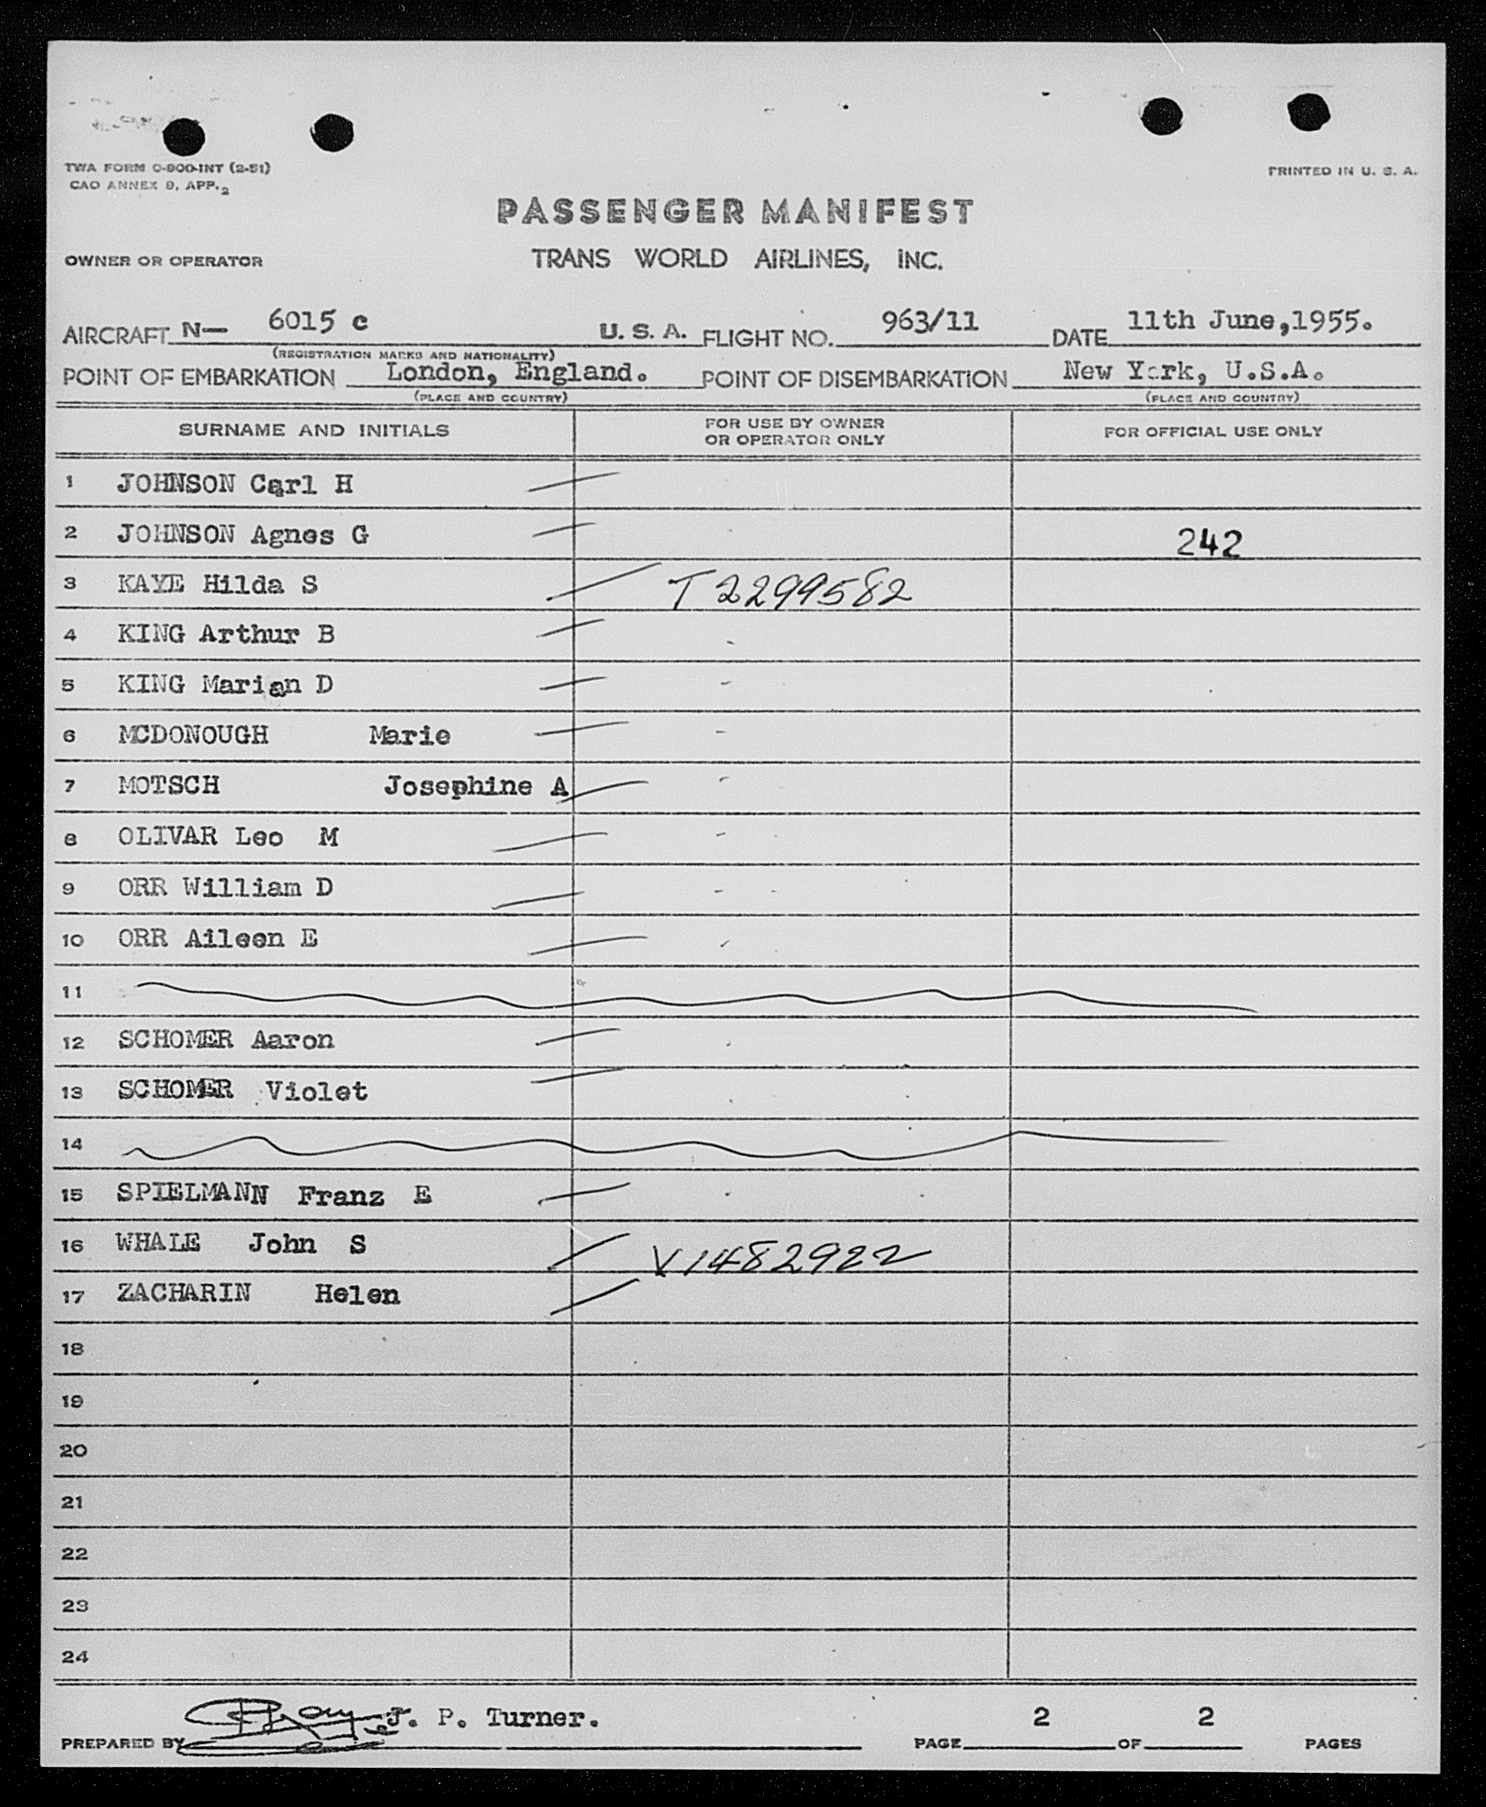 TWA FORM O-800-INT (2-51)
CAO ANNEX 9, APP. 2
PRINTED IN U. S. A.
PASSENGER MANIFEST
OWNER OR OPERATOR
TRANS WORLD AIRLINES, INC.
AIRCRAFT N— 6015 c U. S. A. FLIGHT NO. 963/11 DATE 11th June,1955.
(REGISTRATION MARKS AND NATIONALITY)
POINT OF EMBARKATION London, England. POINT OF DISEMBARKATION New York, U.S.A.
(PLACE AND COUNTRY) (PLACE AND COUNTRY)
SURNAME AND INITIALS FOR USE BY OWNER OR OPERATOR ONLY FOR OFFICIAL USE ONLY
1 JOHNSON Carl H
2 JOHNSON Agnes G 242
3 KAYE Hilda S T2299582
4 KING Arthur B
5 KING Marian D
6 MCDONOUGH Marie
7 MOTSCH Josephine A
8 OLIVAR Leo M
9 ORR William D
10 ORR Aileen E
11
12 SCHOMER Aaron
13 SCHOMER Violet
14
15 SPIELMANN Franz E
16 WHALE John S V1482922
17 ZACHARIN Helen
18
19
20
21
22
23
24
PREPARED BY J. P. Turner. PAGE 2 OF 2 PAGES